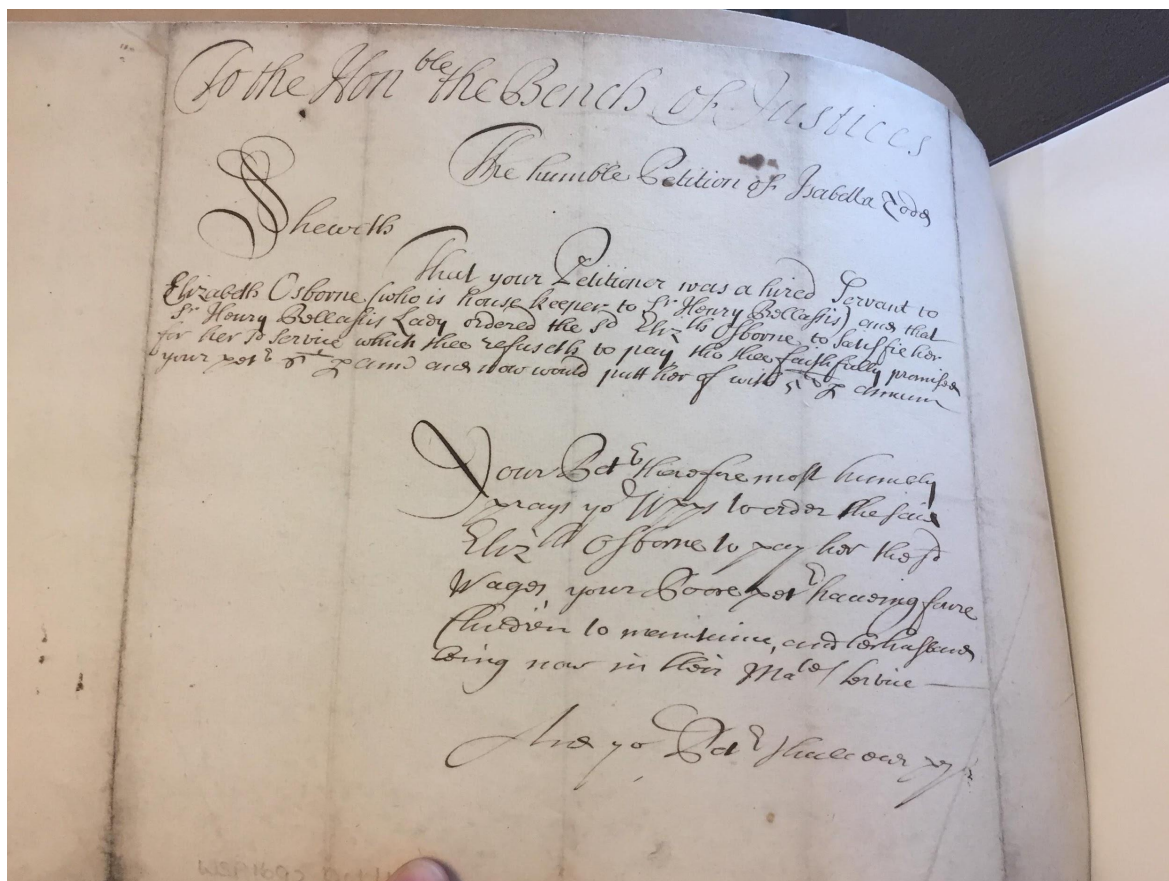 To the Hon ble the Bench of Justices
The humble Petition of Isabella Todd
Shewith
That your Petitioner was a hired Servant to
Elizabeth Osborne (who is house keeper to Sr Henry Bellassis) and that
Sr Henry Bellassis Lady ordered the sd Elizth Osborne to satisfie her
for her sd service which shee refuseth to pay, tho shee faithfully promised
your petr p ann and now would putt her of with p annum
Your Petr therefore most humbly
prays yor Wpps to order the said
Elizth Osborne to pay her the sd
Wages your Poore petr haveing foure
Children to maintaine, and her husband
being now in their Maties service
And yor Petr shall ever pray &c